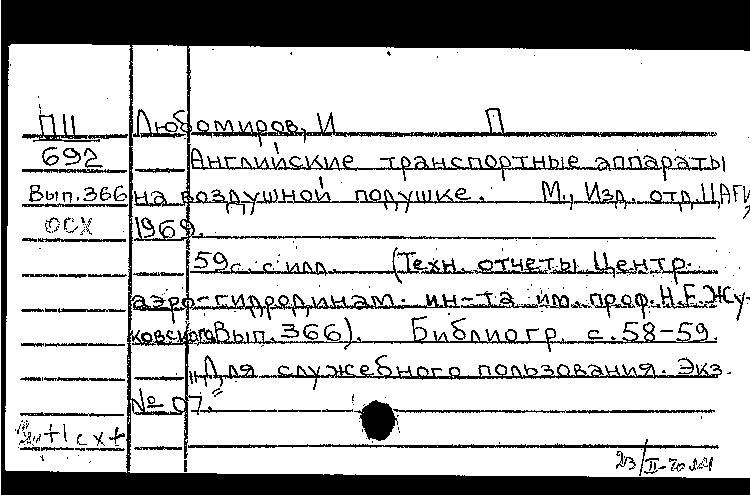 ПII Любомиров, И П
692 Английские транспортные аппараты
Вып.366 на воздушной подушке. М., Изд. отд. ЦАГИ,
ОСХ 1969.
59с. с илл. (Техн. отчеты Центр.
аэро-гидродинам. ин-та им. проф. Н.Е. Жу-
ковского Вып. 366). Библиогр. с. 58-59.
„Для служебного пользования. Экз.
№ 07."
+1сх+
23/II-70